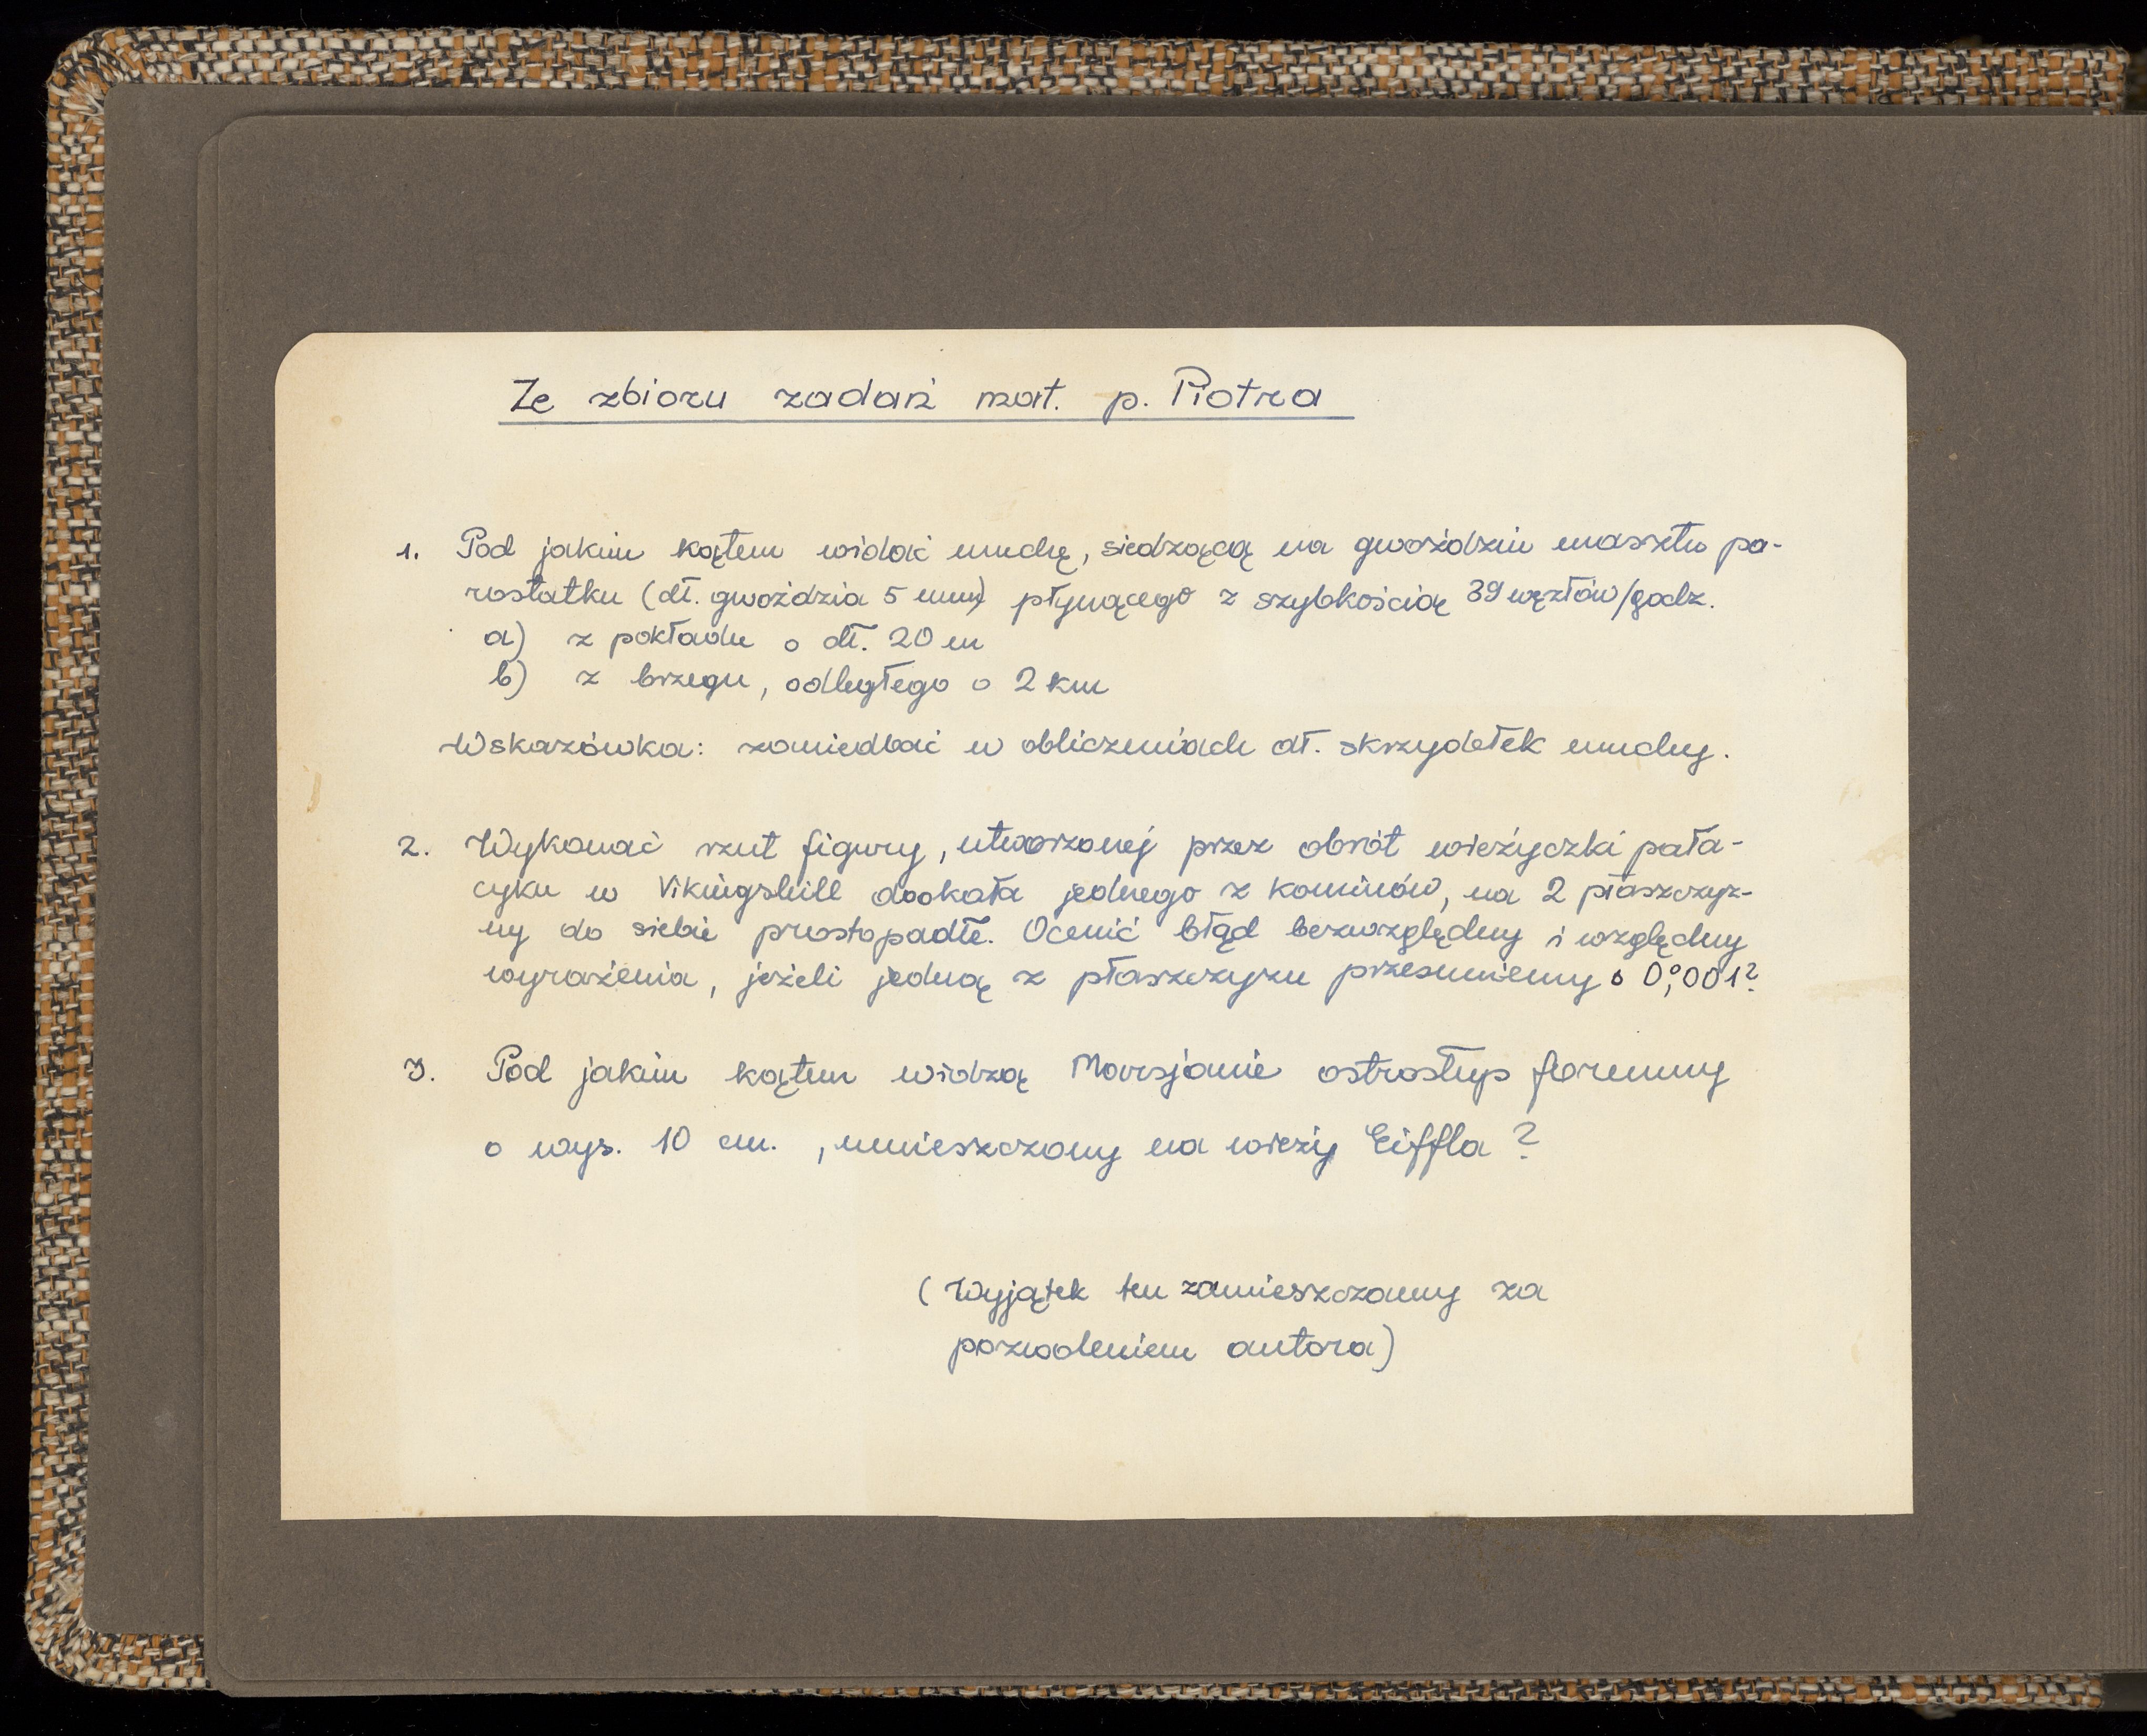 Ze zbioru zadań mat. p. Piotra
1. Pod jakim kątem widać muchę, siedzącą na gwoździu masztu pa-
rostatku (dł. gwoździa 5 mm) płynącego z szybkością 39 węzłów/godz.
a) z pokładu o dł. 20 m
b) z brzegu, odległego o 2 km
Wskazówka: zaniedbać w obliczeniach dł. skrzydełek muchy.
2. Wykonać rzut figury, utworzonej przez obrót wieżyczki pała-
cyku w Vikingshill dookoła jednego z kominów, na 2 płaszczyz-
ny do siebie prostopadłe. Ocenić błąd bezwzględny i względny
wyrażenia, jeżeli jedną z płaszczyzn przesuniemy o 0°,001?
3. Pod jakim kątem widzą Marsjanie ostrosłup foremny
o wys. 10 cm. , umieszczony na wieży Eiffla ?
( Wyjątek ten zamieszczamy za
pozwoleniem autora)